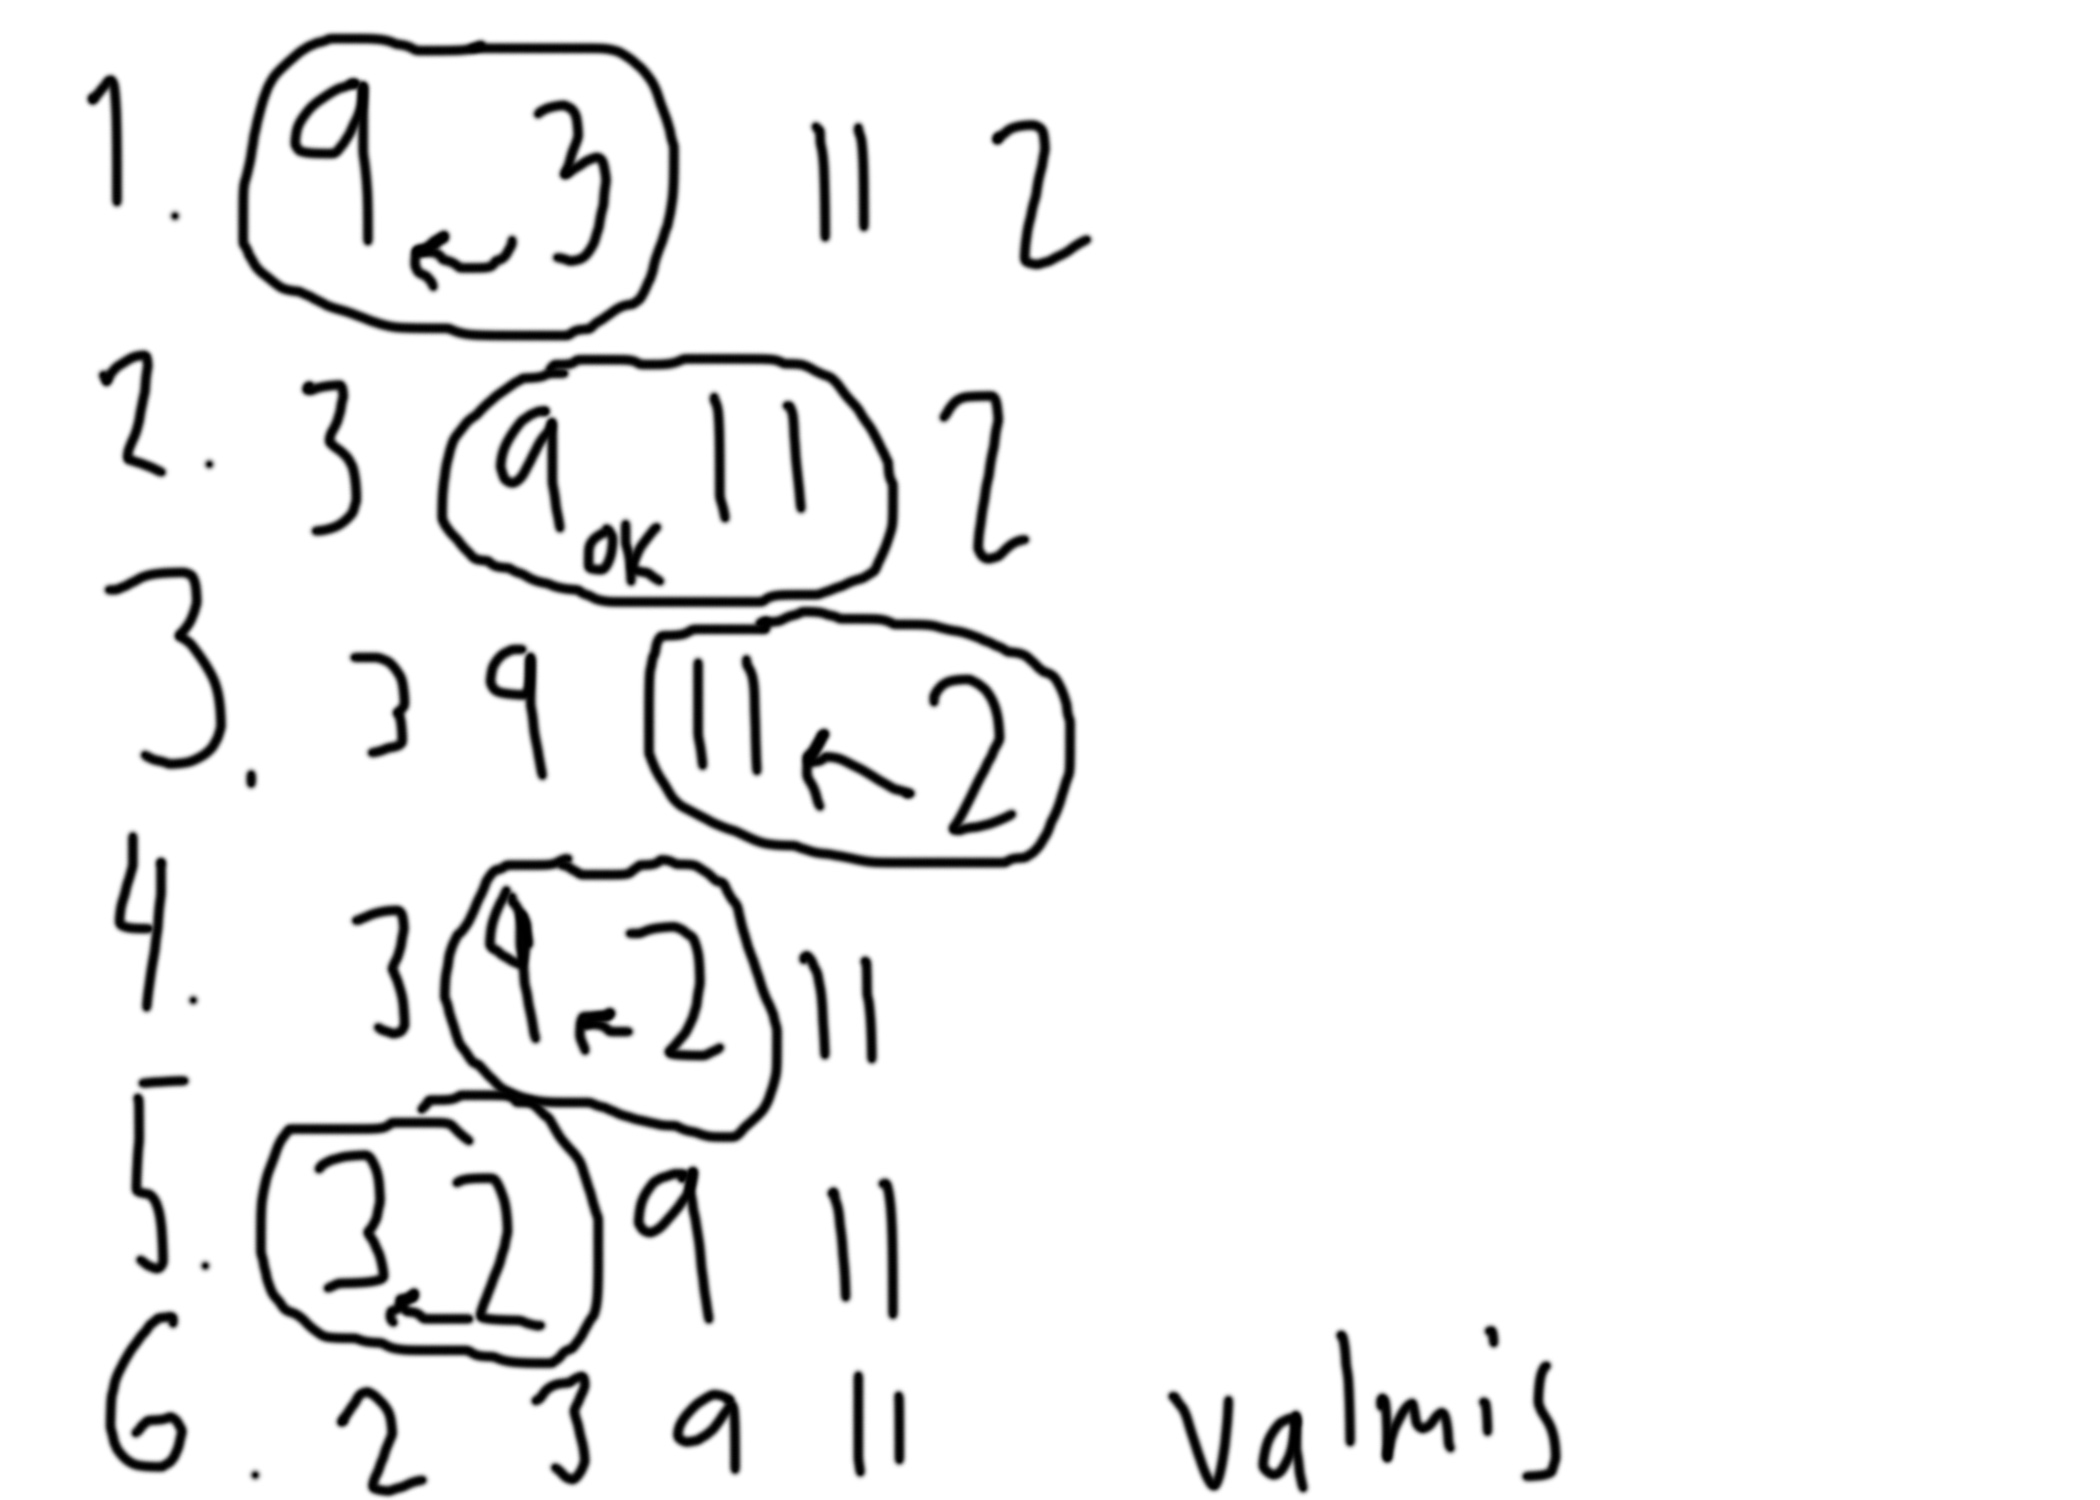 1. 9 3 11 2
2. 3 9 11 2
ok
3. 3 9 11 2
4. 3 9 2 11
5. 3 2 9 11
6. 2 3 9 11 valmis